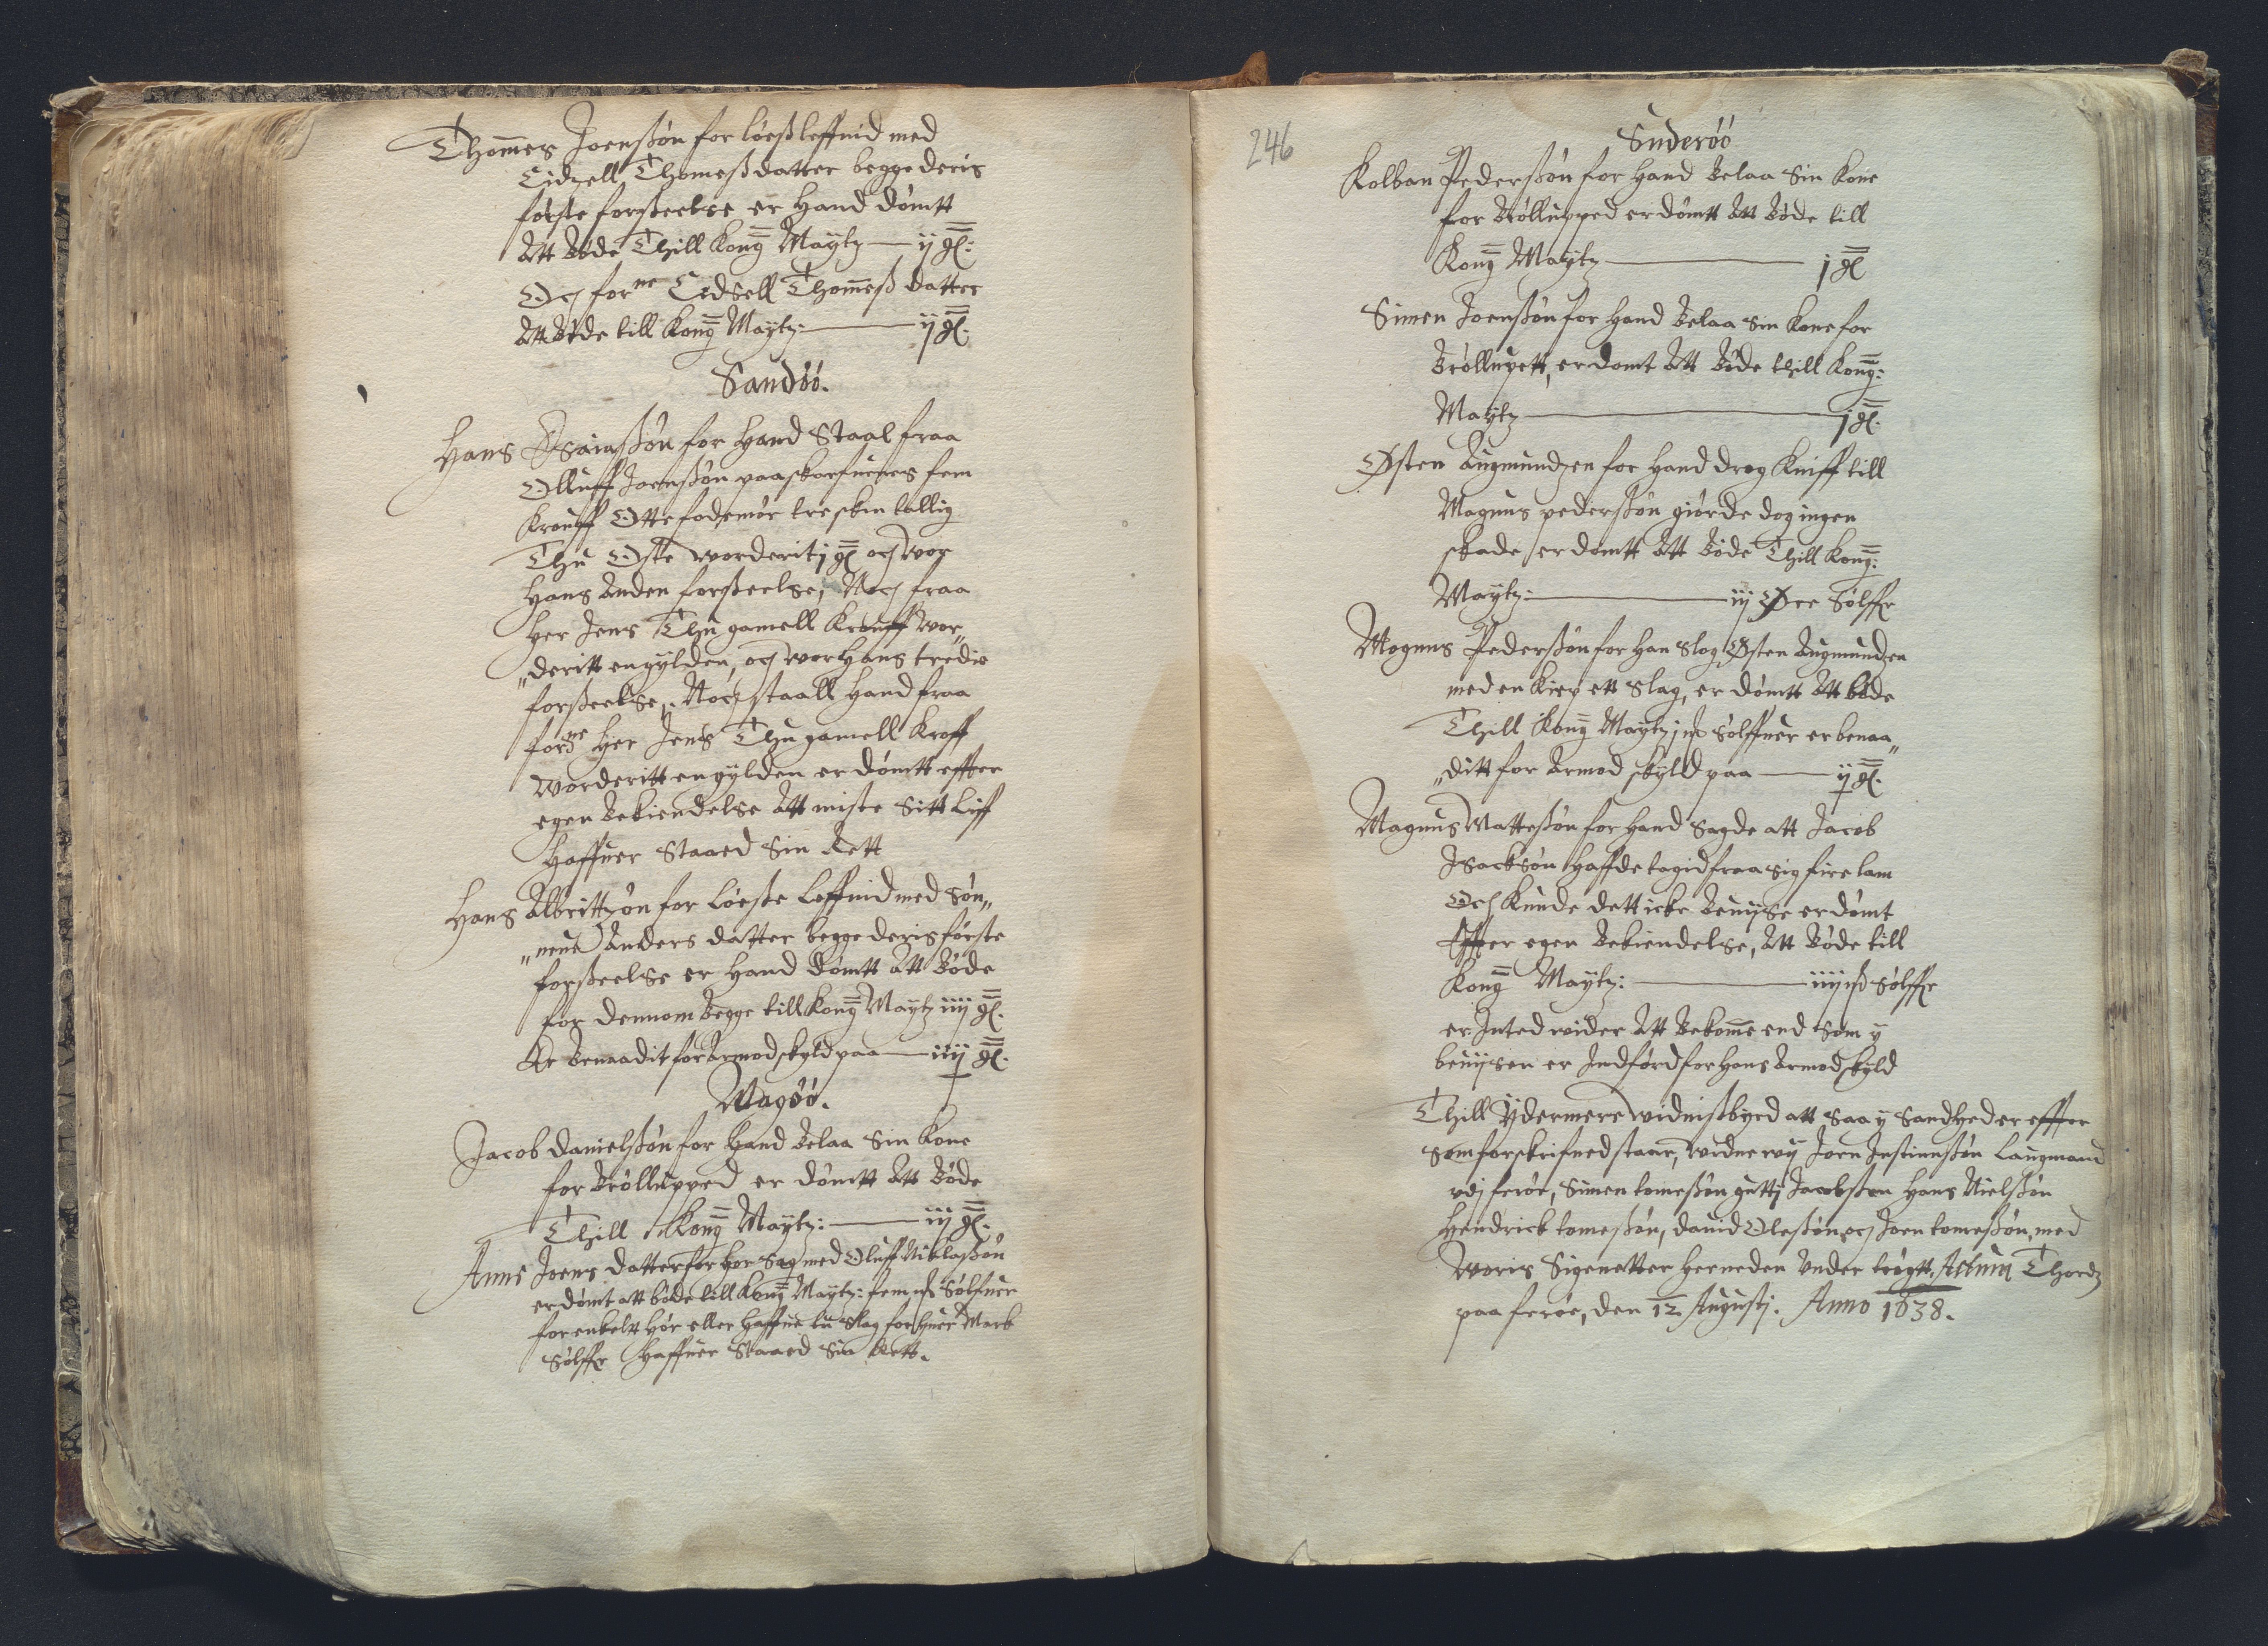 Thom̄es Joensßøn for løeßleffnid med
Sidzell Thomeßdatter begge deris
første forseelse er Hand dømtt
Att Bøde Thill Kong Maytz — ij gl:
Och forne Sidsell Thom̄eß datter
Att Bøde till Kong Maytz: — ij gl.
Sandøø.
Hans for Hand Staal fraa
Olluff Joensßøn paa skorfuenes fem
Krouff Otte fodemør tre skin tallig
Thu Oste worderit j gl och wor
Hans Anden forseelse, Noch fraa
Her Jens Thu gamell Krouff wor„
„deritt en gylden, och wor Hans tredie
forseelse, Noch staall Hand fraa
forne Her Jens Thu gamell Kroff
Worderitt en gylden er dømtt effter
egen Bekiendelse Att miste Sitt Liff
Haffuer Staaed Sin Rett
Hans Albrittzøn for Løeße Leffnid med Søn„
„neue Anders datter begge deris første
forseelse er Hand Dømtt Att Bøde
for dennom Begge till Kong Maytz iiij gl.
Er Benaadit for Armod skyld paa — iij gl.
Wagøø.
Jacob Danielsßøn for Hand Belaa Sin Kone
for Brøllupped er dømtt Att Bøde
Thill Kong Maytz: — iij gl.
Anne Joens datter for Hor Sag med Oluff Niklaßøn
er dømt att bøde till Kong Maytz: fem Sølfuer
for enkelt Hor eller Haffue tu Slag for huer Mark
Sølffr Haffuer Staaed Sin Rett.
246
Suderøø
Kolban Pedersßøn for Hand Belaa Sin Kone
for Brøllupped er dømtt Att Bøde till
Kong Maytz — j gl
Simen Joensßøn for Hand Belaa Sin Kone for
Brøllupett, er domt Att Bøde thill Kong:
Maytz — j gl.
Østen Augmundzen for Hand drog Kniff till
Magnus pedersßøn giørde dog ingen
skade, er dømtt Att Bøde Thill Kong:
Maytz: — iij Øre Sølffr
Mognus Pedersßøn for Han Slog Østen Augmundzen
med en Kiep ett Slag, er dømtt Att bøde
Thill Kong Maytz j Sølffuer er benaa„
„ditt for Armod skyld paa — ij gl.
Magnus Matteßøn for Hand Sagde att Jacob
Isacksøn Haffde tagid fraa Sig fire lam
Och Kunde dett icke Beuijse er dømt
Effter egen Bekiendelse, Att Bøde till
Kong Maytz: — iiij Sølffr
er Inted wider Att Bekom̄e end Som y
beuijsen er Indførd for Hans Armod skyld
Thill Ydermere widnißbyrd att Saa y Sandhed er effter
Som forskrifued staar, widne wij Joen Justinusßøn Laugmand
vdj ferøe, Simen tomeßøn guttj Jacobsßen Hans Nielsßøn
Hendrick tomeßøn, dauid Oleßøn och Joen tomeßøn, med
Woris Signetter Herneden Under trøgtt. Actum Thord
paa ferøe, den 12 Augustj. Anno 1638.